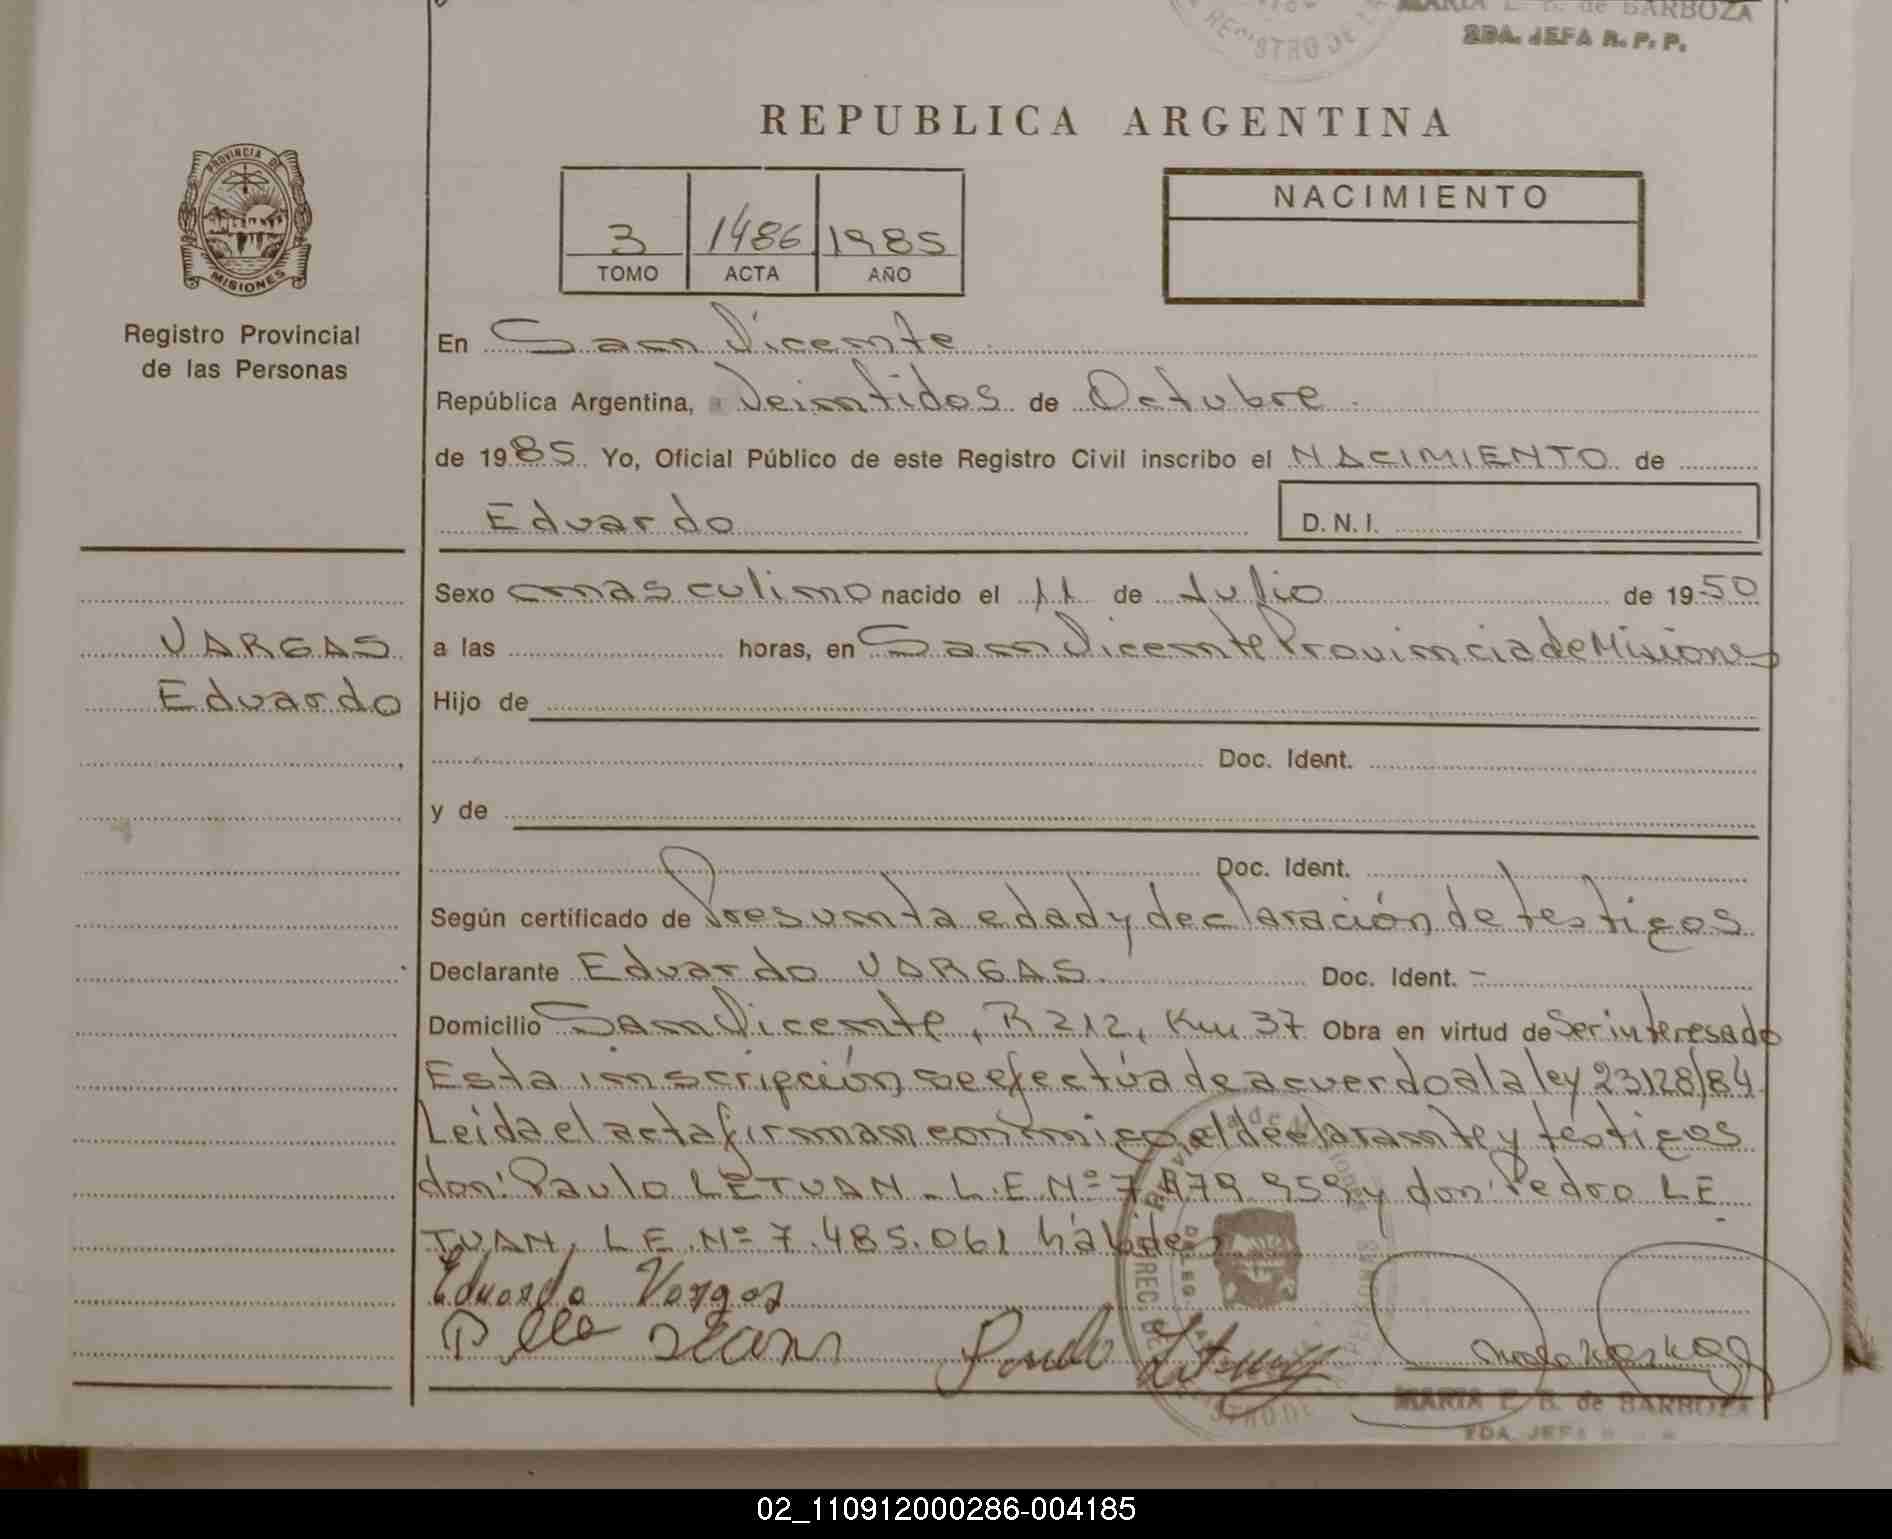 MARIA E. B. de BARBOZA
2DA. JEFA R. P. P.
REGISTRO DE LA
REPUBLICA ARGENTINA
PROVINCIA DE
MISIONES
Registro Provincial
de las Personas
3 1486 1985
TOMO ACTA AÑO
NACIMIENTO
En San Vicente
República Argentina, a Veintidos de Octubre
de 1985 Yo, Oficial Público de este Registro Civil inscribo el NACIMIENTO de
Eduardo
D. N. I.
VARGAS
Eduardo
Sexo masculino nacido el 11 de Julio de 1950
a las horas, en San Vicente Provincia de Misiones
Hijo de
Doc. Ident.
y de
Doc. Ident.
Según certificado de Presunta edad y declaración de testigos
Declarante Eduardo VARGAS. Doc. Ident. -
Domicilio San Vicente, R 212, Km 37 Obra en virtud de Ser interesado
Esta inscripción se efectúa de acuerdo a la ley 23128/84
Leida el acta firman conmigo, el declarante y testigos
don: Paulo LETUAN - L.E.Nº 7. 959 y don: Pedro LE
TUAN, L.E.Nº 7.485.061 hábiles
Eduardo Vargas
MARIA E. B. de BARBOZA
2DA. JEFA
02_110912000286-004185